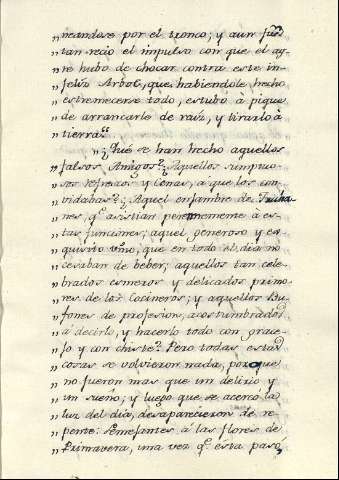 „neandose por el tronco; y aun fue
„tan recio el impulso con que el ay-
„re hubo de chocar contra este in-
„feliz Arbol, que habiendole hecho
„estremecerse todo, estubo á pique
„de arrancarlo de raiz, y tirarlo à
„tierra."
„¿Què se han hecho aquellos
„falsos Amigos? ¿Aquellos sumptuo-
„ses Refrescos y Cenas, a que los con-
„vidabas? ¿Aquel enjambre de Truha-
„nes, q.e asistian perennemente à es-
„tas funciones; aquel generoso y ex-
„quisito vino, que en todo el dia no
„cesaban de beber; aquellos tan cele-
„brados esmeros y delicados primo-
„res de los Cocineros; y aquellos Bu-
„fones de profesion, acostumbrados
„à decirlo, y hacerlo todo con grace-
„jo y con chiste? Pero todas estas
„cosas se volvieron nada, porque
„no fueron mas que un delirio y
„un sueño; y luego que se acercó la
„luz del dia, desaparecieron de re-
„pente: Semejantes à las flores de
„Primavera, una vez q.e esta pasó,